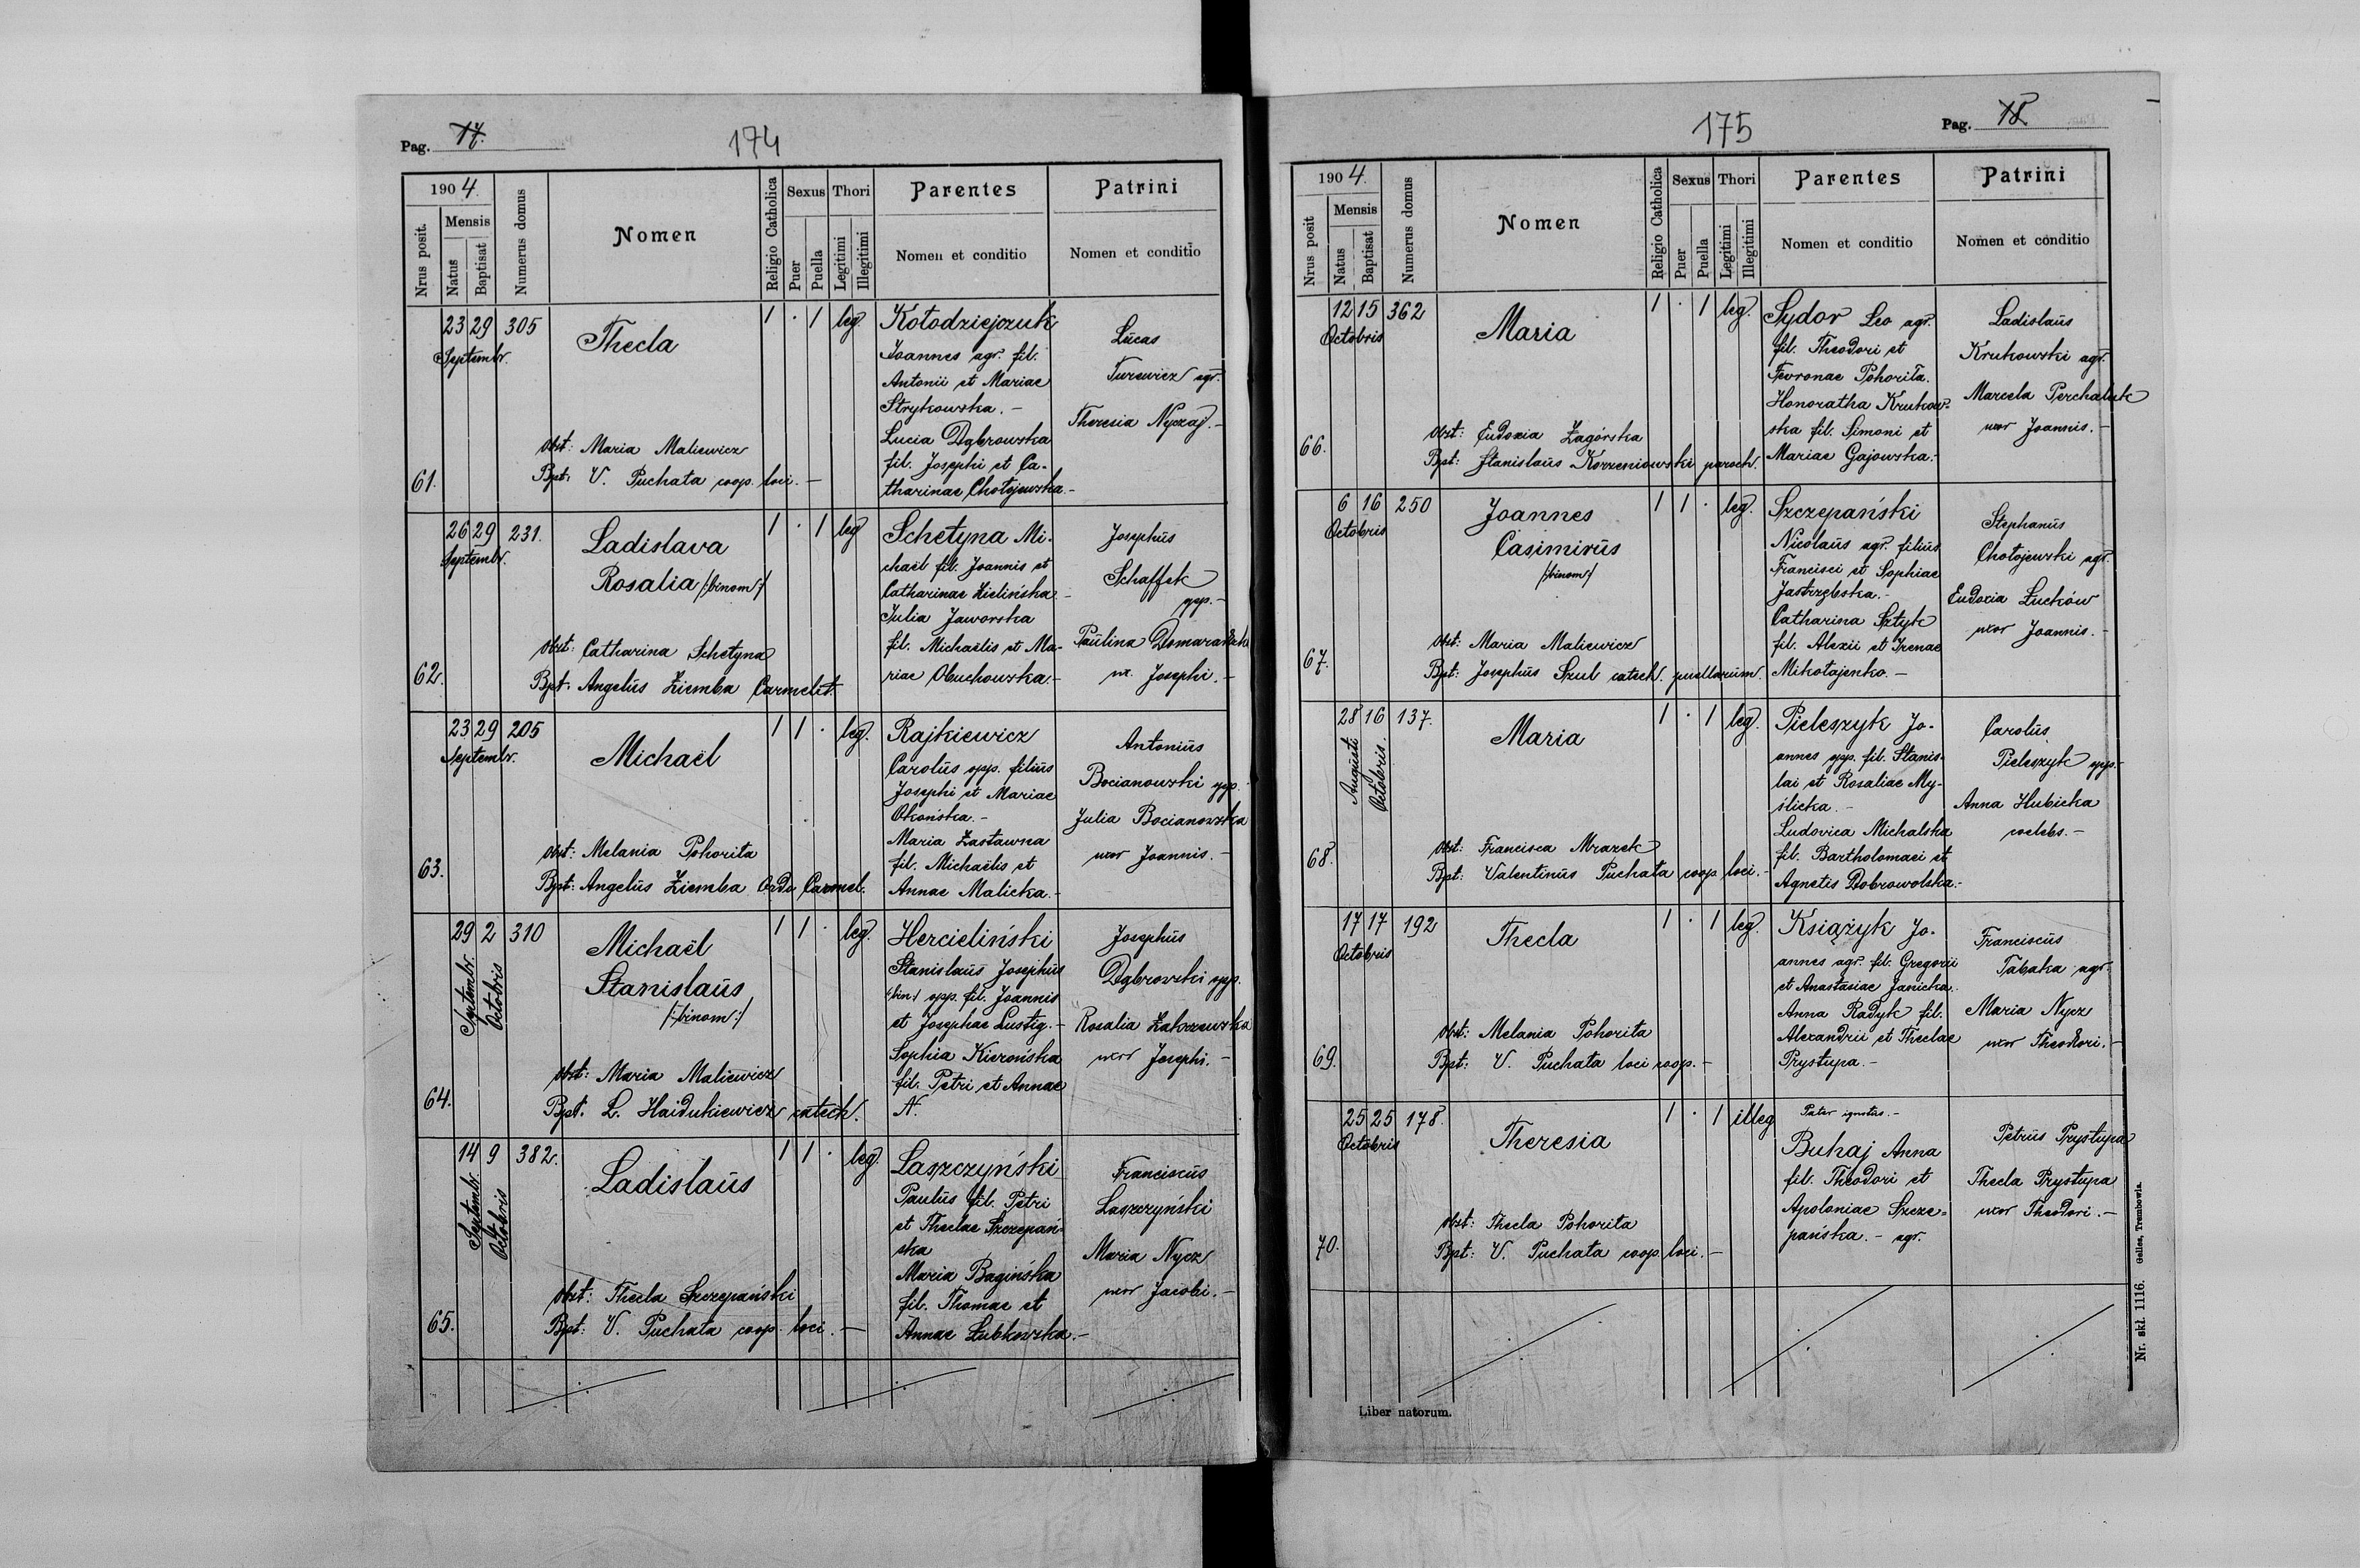 Pag. 17.
174
1904.
Nrus posit.
Mensis
Natus
Baptisat
Numerus domus
Nomen
Religio Catholica
Sexus
Puer
Puella
Thori
Legitimi
Illegitimi
Parentes
Nomen et conditio
Patrini
Nomen et conditio
61.
23 29 305
Septembr.
Thecla
1 · 1 leg.
obst: Maria Maliewicz
Bpt: V. Puchata coop. loci. -
Kołodziejczuk
Joannes agr. fil.
Antonii et Mariae
Strykowska. -
Lucia Dąbrowska
fil. Josephi et Ca-
tharinae Chołojewska. -
Lucas
Turewicz agr.
Theresia Nyczaj. -
62.
26 29 231.
Septembr.
Ladislava
Rosalia /:binom:/
1 · 1 leg
obst: Catharina Schetyna
Bpt: Angelus Ziemba Carmelit.
Schetyna Mi-
chaël fil. Joannis et
Catharinae Zielińska -
Julia Jaworska
fil. Michaëlis et Ma-
riae Obuchowska. -
Josephus
Schaffek
opp. -
Paulina
ux. Josephi. -
63.
23 29 205
Septembr.
Michaël
1 1 · leg.
obst: Melania Pohorita
Bpt: Angelus Ziemba Ordo Carmel.
Rajkiewicz
Carolus opp. filius
Josephi et Mariae
Okońska. -
Maria Zastawna
fil. Michaëlis et
Annae Malicka. -
Antonius
Bocianowski opp. -
Julia Bocianowska
uxor Joannis. -
64.
29 2 310
Septembr.
Octobris
Michaël
Stanislaus
/:binom:/
1 1 · leg.
obst: Maria Maliewicz
Bpt. L. Haidukiewicz catech.
Hercieliński
Stanislaus Josephus
/:bin:/ opp. fil. Joannis
et Josephae Lustig. -
Sophia Kierońska
fil. Petri et Annae
N.
Josephus
Dąbrowski opp.
Rosalia Zakrzewska
uxor Josephi. -
65.
14 9 382.
Septembr.
Octobris
Ladislaus
1 1 · leg.
obst: Thecla Szczepański
Bpt: V. Puchata coop. loci. -
Laszczyński
Paulus fil. Petri
et Theclae Szczepań-
ska
Maria Bagińska
fil. Thomae et
Annae Lubkowska. -
Franciscus
Laszczyński
Maria Nycz
uxor Jacobi. -
175
Pag. 18
1904.
Nrus posit
Mensis
Natus
Baptisat
Numerus domus
Nomen
Religio Catholica
Sexus
Puer
Puella
Thori
Legitimi
Illegitimi
Parentes
Nomen et conditio
Patrini
Nomen et conditio
66.
12 15 362
Octobris
Maria
1 · 1 leg.
obst: Eudoxia Zagórska
Bpt: Stanislaus Korzeniowski paroch.
Sydor Leo agr.
fil. Theodori et
Fevronae Pohorita.
Honoratha Krukow-
ska fil. Simoni et
Mariae Gajowska. -
Ladislaus
Krukowski agr.
Marcela Perchaluk
uxor Joannis. -
67.
6 16 250
Octobris
Joannes
Casimirus
/:binom:/
1 1 · leg.
obst: Maria Maliewicz
Bpt: Josephus Szul catech. puellarum.
Szczepański
Nicolaus agr. filius
Francisci et Sophiae
Jastrzębska. -
Catharina Sztyk
fil. Alexii et Irenae
Mikołajenko. -
Stephanus
Chołojewski agr.
Eudoxia Luckow
uxor Joannis. -
68.
28 16 137.
Augusti
Octobris.
Maria
1 · 1 leg.
obst: Francisca Mrazek
Bpt: Valentinus Puchata coop. loci. -
Pieleszyk Jo-
annes opp. fil. Stanis-
lai et Rosaliae My-
ślicka. -
Ludovica Michalska
fil. Bartholomaei et
Agnetis Dobrowolska. -
Carolus
Pieleszyk opp. -
Anna Hubicka
coelebs. -
69.
17 17 192
Octobris
Thecla
1 · 1 leg.
obst: Melania Pohorita
Bpt: V. Puchata loci coop. -
Książyk Jo-
annes agr. fil. Gregorii
et Anastasiae Janicka.
Anna Radyk fil.
Alexandrii et Theclae
Prystupa. -
Franciscus
Tabaka agr.
Maria Nycz
uxor Theodori. -
70.
25 25 178.
Octobris
Theresia
1 · 1 illeg
obst: Thecla Pohorita
Bpt: V. Puchata coop. loci. -
Pater ignotus. -
Buhaj Anna
fil. Theodori et
Apoloniae Szcze-
pańska. - agr.
Petrus Prystupa
Thecla Prystupa
uxor Theodori. -
Liber natorum.
Nr. skł. 1116. Galles, Trembowla.